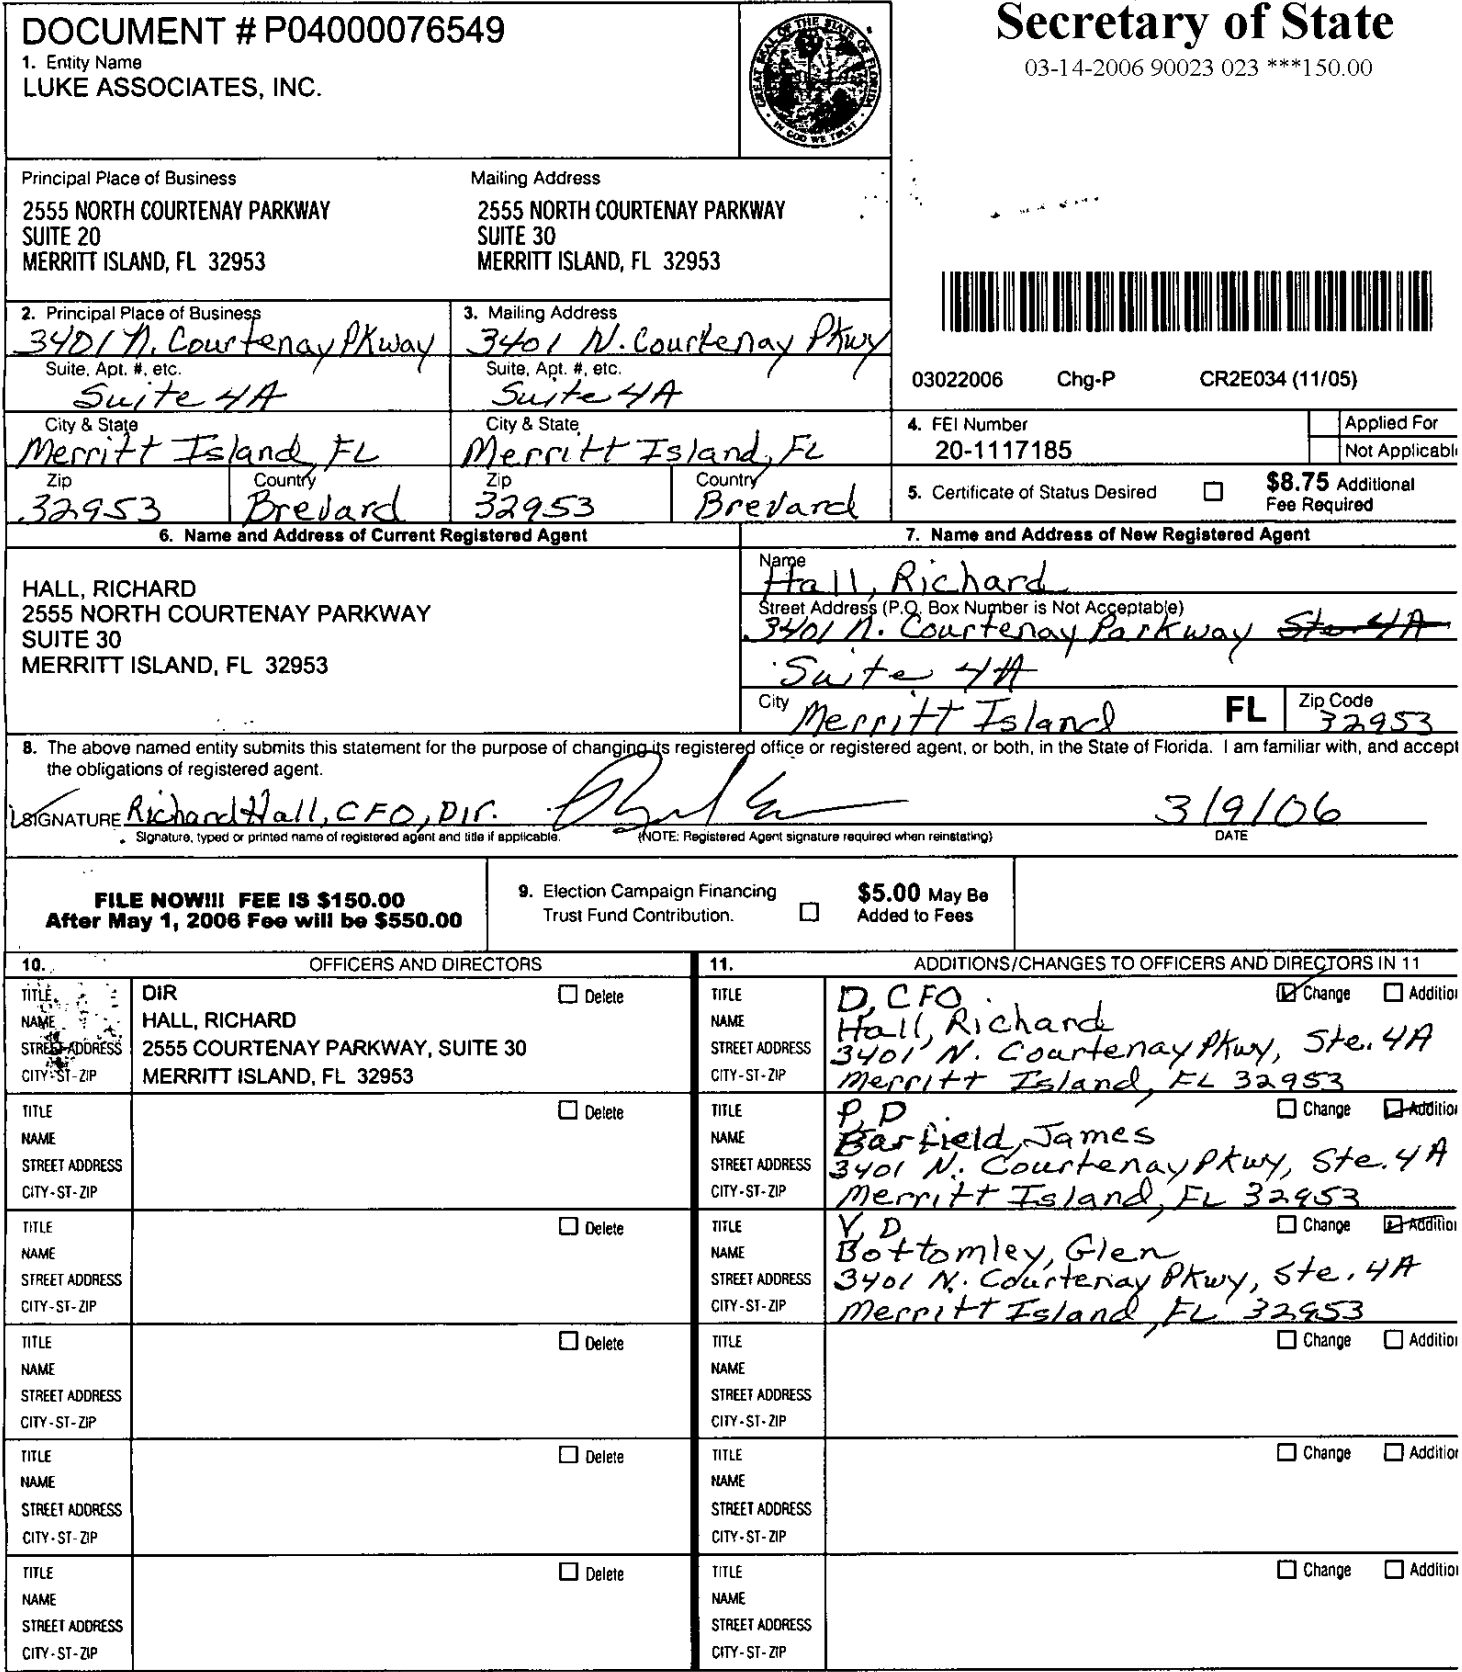 DOCUMENT # P04000076549
1. Entity Name
LUKE ASSOCIATES, INC.
GREAT SEAL OF THE STATE OF FLORIDA
IN GOD WE TRUST
Secretary of State
03-14-2006 90023 023 ***150.00
Principal Place of Business
2555 NORTH COURTENAY PARKWAY
SUITE 20
MERRITT ISLAND, FL 32953
Mailing Address
2555 NORTH COURTENAY PARKWAY
SUITE 30
MERRITT ISLAND, FL 32953
2. Principal Place of Business
3401 N. Courtenay PKway
Suite, Apt. #, etc.
Suite 4A
City & State
Merritt Island, FL
Zip
32953
Country
Brevard
3. Mailing Address
3401 N. Courtenay Pkwy
Suite, Apt. #, etc.
Suite 4A
City & State
Merritt Island, FL
Zip
32953
Country
Brevard
03022006 Chg-P CR2E034 (11/05)
4. FEI Number
20-1117185
Applied For
Not Applicabl
5. Certificate of Status Desired
$8.75 Additional
Fee Required
6. Name and Address of Current Registered Agent
HALL, RICHARD
2555 NORTH COURTENAY PARKWAY
SUITE 30
MERRITT ISLAND, FL 32953
7. Name and Address of New Registered Agent
Name
Hall, Richard
Street Address (P.O. Box Number is Not Acceptable)
3401 N. Courtenay Parkway Ste 4A
Suite 4A
City Merritt Island FL Zip Code
32953
8. The above named entity submits this statement for the purpose of changing its registered office or registered agent, or both, in the State of Florida. I am familiar with, and accept
the obligations of registered agent.
SIGNATURE Richard Hall, CFO, Dir. 3/9/06
Signature, typed or printed name of registered agent and title if applicable. (NOTE: Registered Agent signature required when reinstating) DATE
FILE NOW!!! FEE IS $150.00
After May 1, 2006 Fee will be $550.00
9. Election Campaign Financing
Trust Fund Contribution.
$5.00 May Be
Added to Fees
10. OFFICERS AND DIRECTORS
TITLE DIR Delete
NAME HALL, RICHARD
STREET ADDRESS 2555 COURTENAY PARKWAY, SUITE 30
CITY-ST-ZIP MERRITT ISLAND, FL 32953
TITLE Delete
NAME
STREET ADDRESS
CITY-ST-ZIP
TITLE Delete
NAME
STREET ADDRESS
CITY-ST-ZIP
TITLE Delete
NAME
STREET ADDRESS
CITY-ST-ZIP
TITLE Delete
NAME
STREET ADDRESS
CITY-ST-ZIP
TITLE Delete
NAME
STREET ADDRESS
CITY-ST-ZIP
11. ADDITIONS/CHANGES TO OFFICERS AND DIRECTORS IN 11
TITLE D, CFO Change Additio
NAME Hall, Richard
STREET ADDRESS 3401 N. Courtenay Pkwy, Ste. 4A
CITY-ST-ZIP Merritt Island, FL 32953
TITLE P, D Change Additio
NAME Barfield, James
STREET ADDRESS 3401 N. Courtenay Pkwy, Ste. 4A
CITY-ST-ZIP Merritt Island, FL 32953
TITLE V, D Change Additio
NAME Bottomley, Glen
STREET ADDRESS 3401 N. Courtenay Pkwy, Ste. 4A
CITY-ST-ZIP Merritt Island, FL 32953
TITLE Change Additio
NAME
STREET ADDRESS
CITY-ST-ZIP
TITLE Change Additio
NAME
STREET ADDRESS
CITY-ST-ZIP
TITLE Change Additio
NAME
STREET ADDRESS
CITY-ST-ZIP